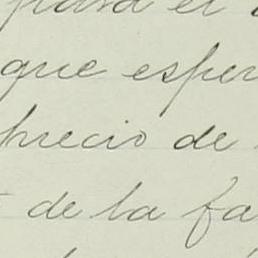 para el
que esper
precio de
de la fa